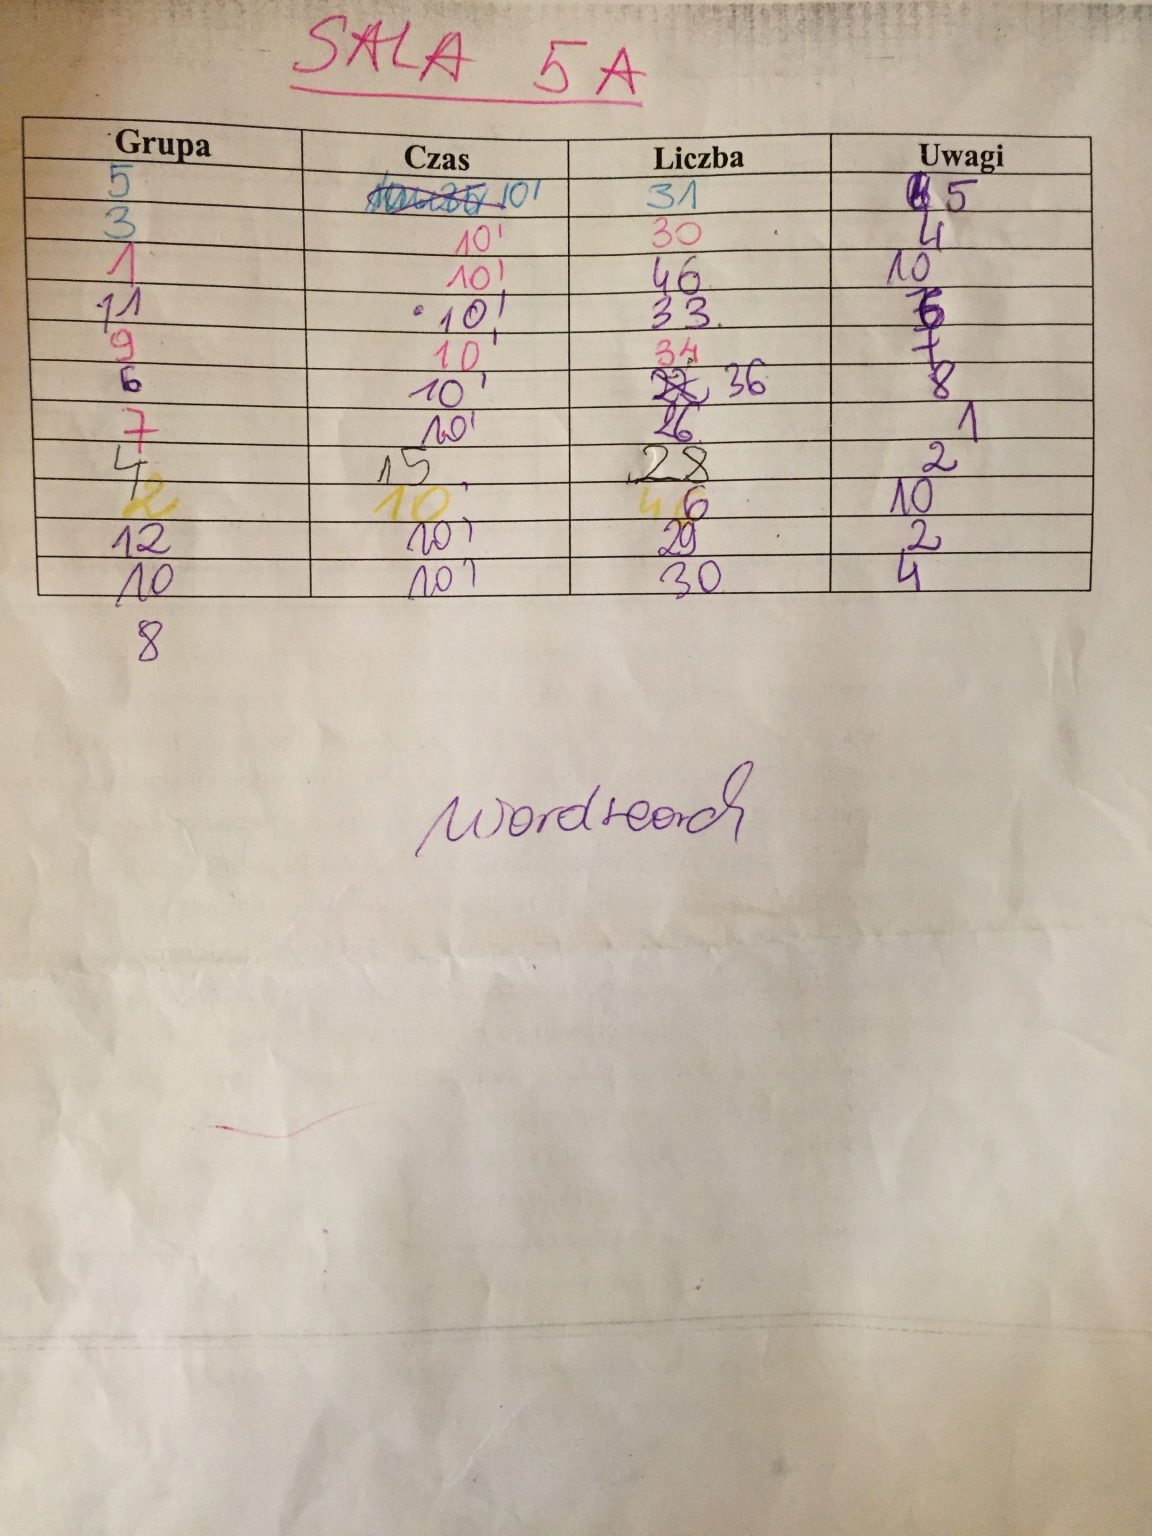 SALA 5A
Grupa Czas Liczba Uwagi
5 10' 31 5
3 10' 30 4
1 10' 46 10
11 10' 33 6
9 10' 34 7
6 10' 36 8
7 10' 26 1
4 15 28 2
2 10' 46 10
12 10' 29 2
10 10' 30 4
8
Wordsearch